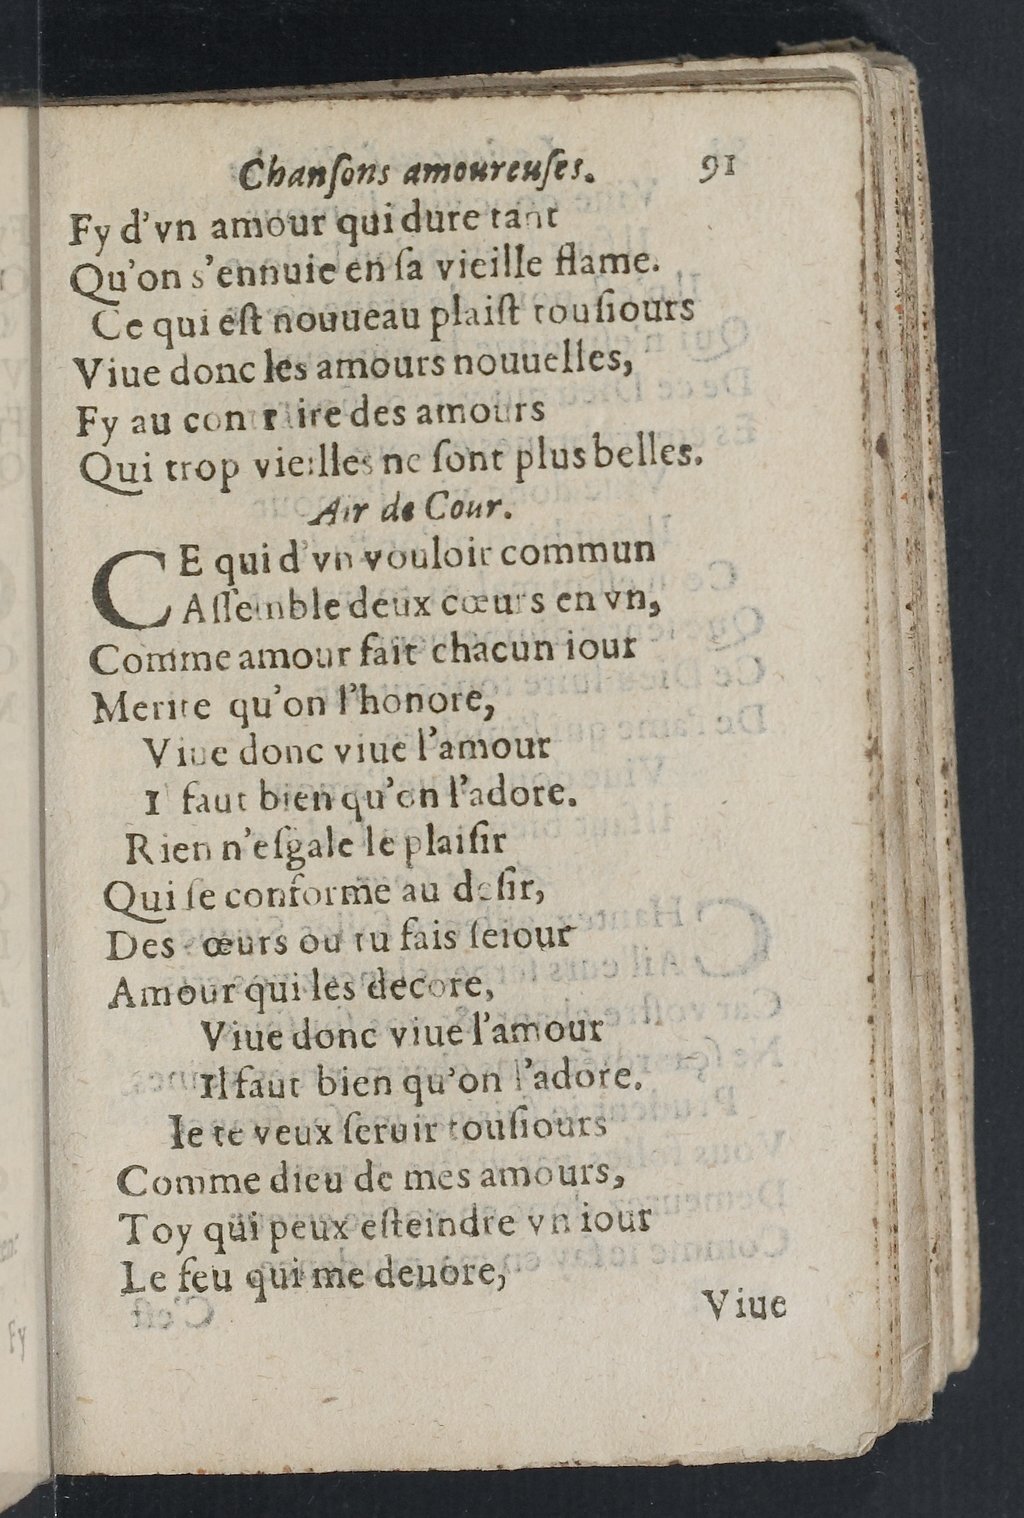 Chanſons amoureuſes. 91
Fy d'vn amour qui dure tant
Qu'on s'ennuie en ſa vieille flame.
Ce qui eſt nouueau plaiſt touſiours
Viue donc les amours nouuelles,
Fy au contraire des amours
Qui trop vieilles ne ſont plus belles.
Air de Cour.
CE qui d'vn vouloir commun
Aſſemble deux cœurs en vn,
Comme amour fait chacun iour
Merite qu'on l'honore,
Viue donc viue l'amour
Il faut bien qu'on l'adore.
Rien n'eſgale le plaiſir
Qui ſe conforme au deſir,
Des cœurs ou tu fais ſeiour
Amour qui les decore,
Viue donc viue l'amour
Il faut bien qu'on l'adore.
Ie te veux ſeruir touſiours
Comme dieu de mes amours,
Toy qui peux eſteindre vn iour
Le feu qui me deuore,
Viue
Fy